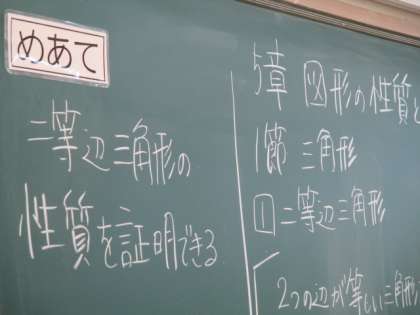 めあて
二等辺三角形の
性質を証明できる
5章 図形の性質と
1節 三角形
1 二等辺三角形
2つの辺が等しい三角形